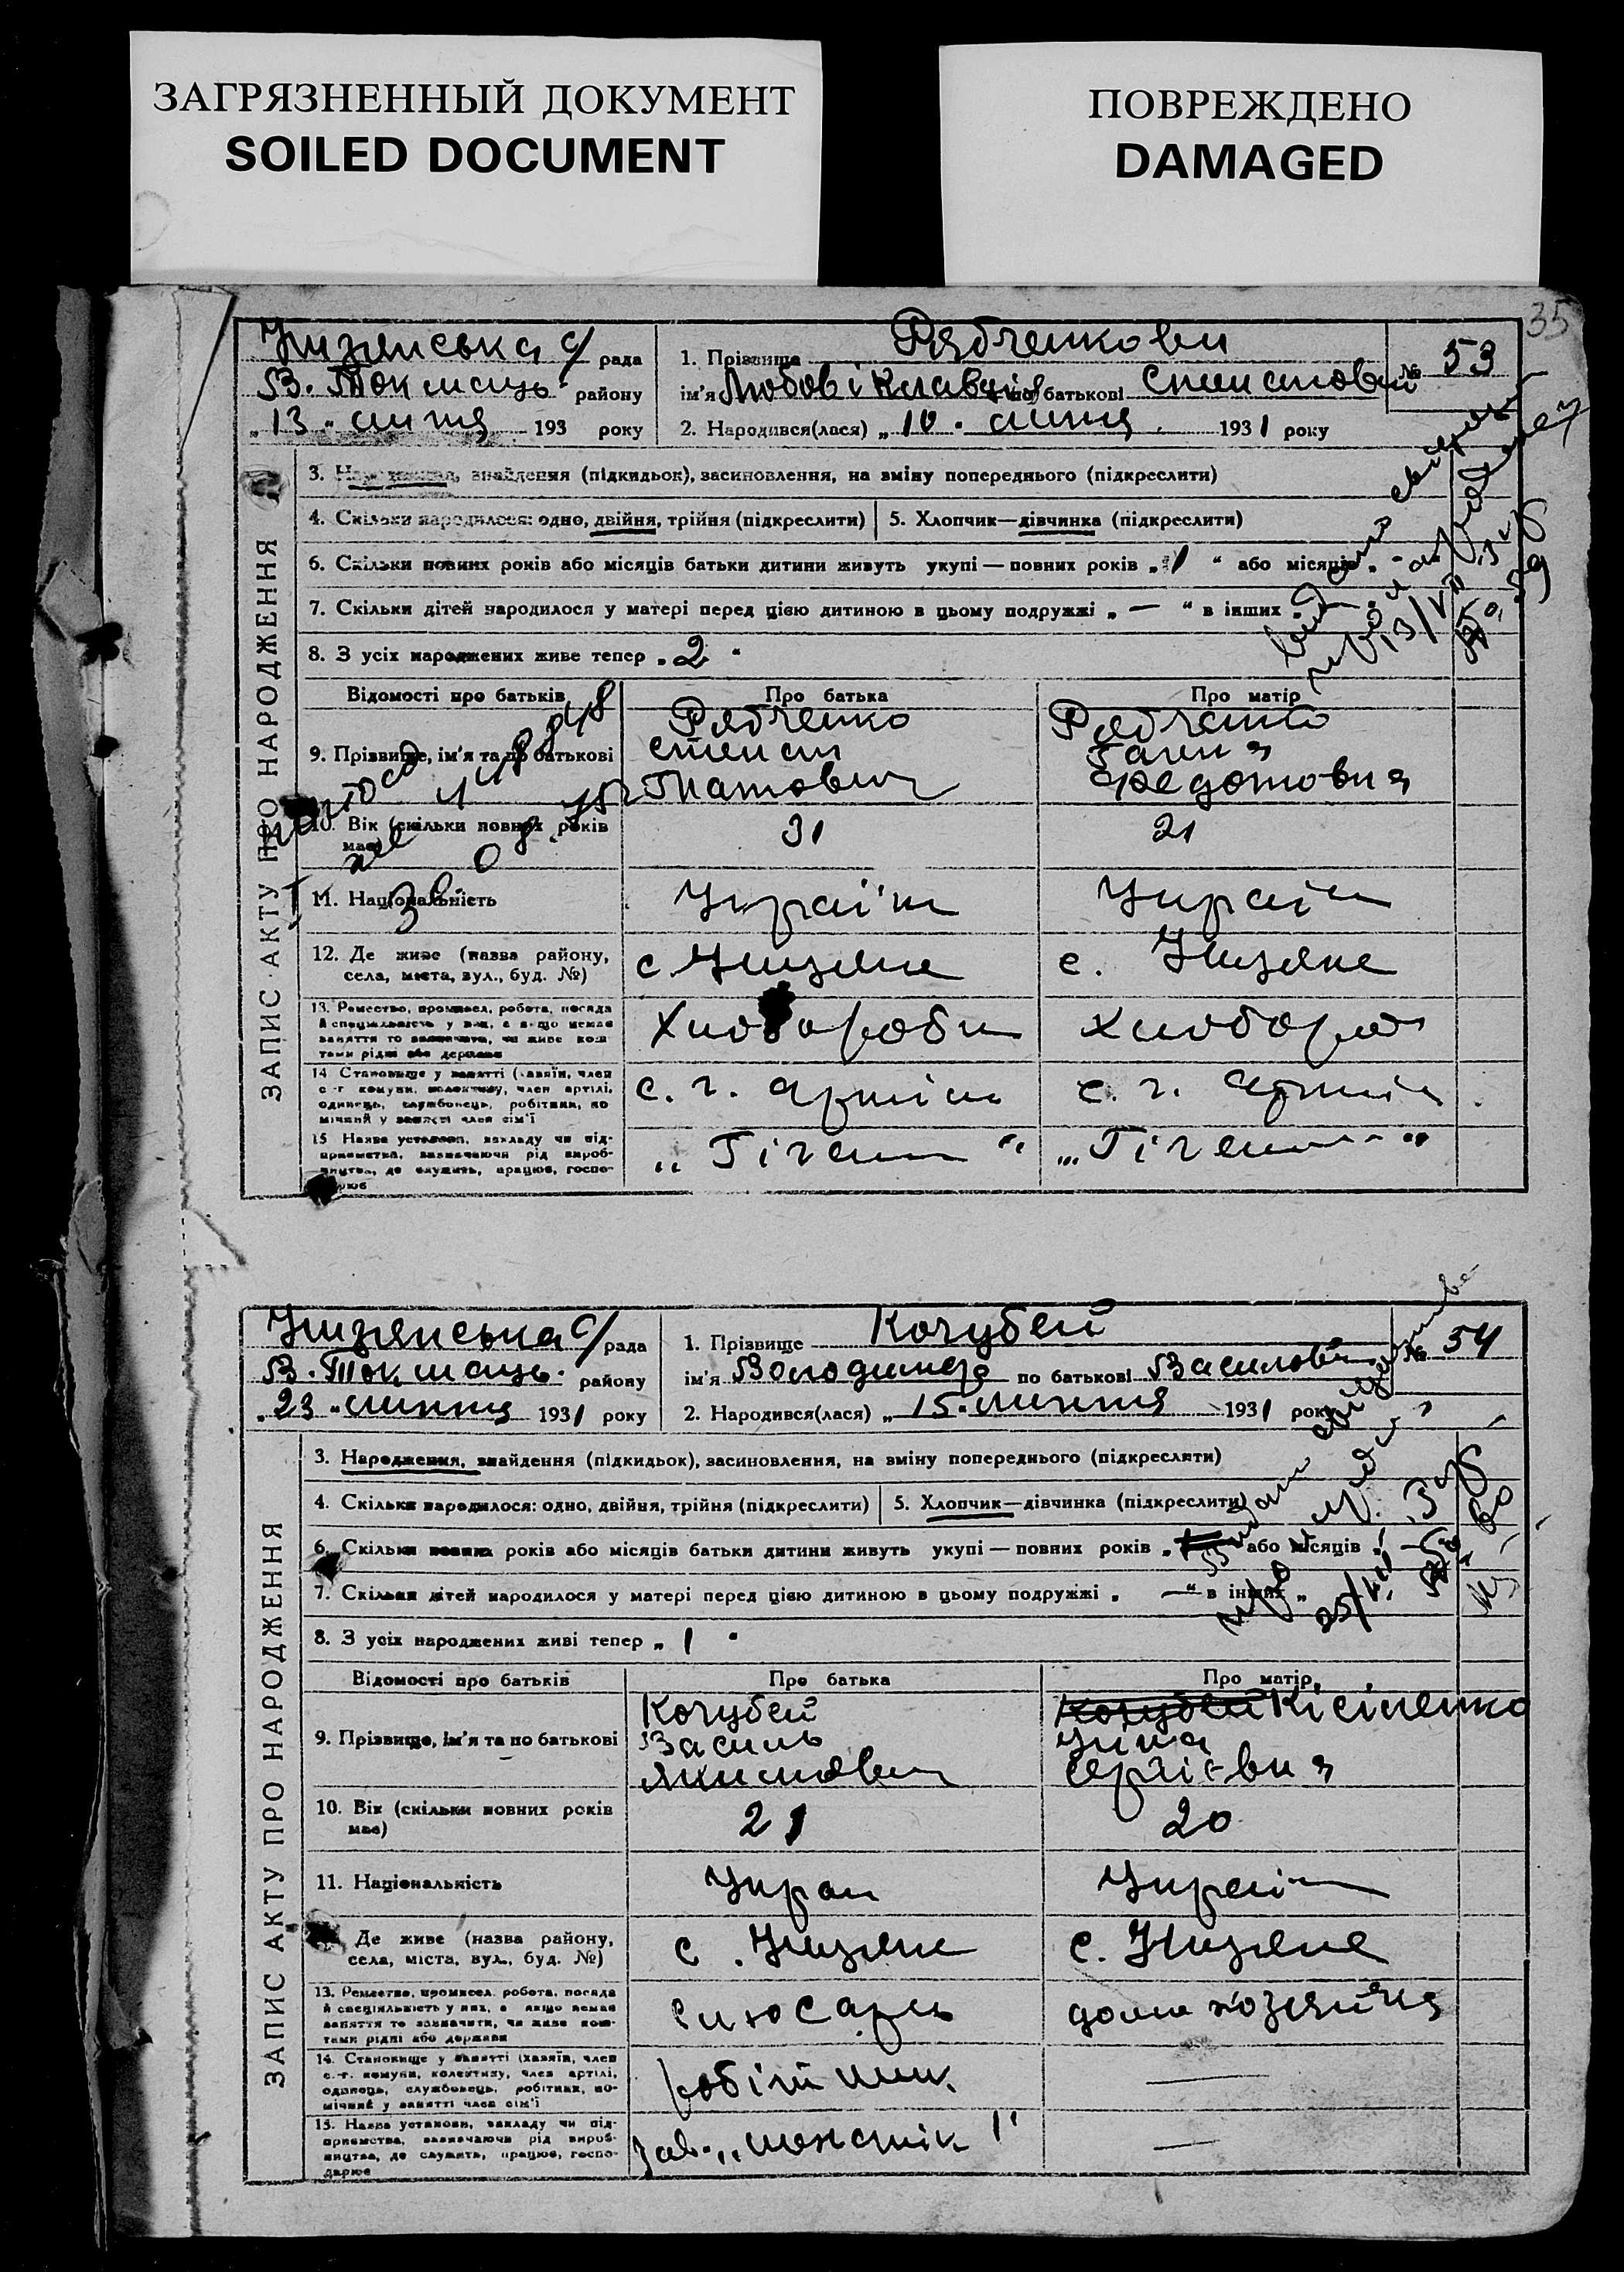 ЗАГРЯЗНЕННЫЙ ДОКУМЕНТ
SOILED DOCUMENT
ПОВРЕЖДЕНО
DAMAGED
35
ЗАПИС АКТУ ПРО НАРОДЖЕННЯ
рада
В. Токмаць району
"13" липня 193 року
1. Прізвище Рябченкови
ім'я Любов і Клавція по батькові Степанови
№ 53
2. Народився(лася) "10" липня 1931 року
3. Народження, знайдення (підкидьок), засиновлення, на зміну попереднього (підкреслити)
4. Скільки народилося: одно, двійня, трійня (підкреслити)
5. Хлопчик—дівчинка (підкреслити)
6. Скільки повних років або місяців батьки дитини живуть укупі — повних років „1“ або місяців „
7. Скільки дітей народилося у матері перед цією дитиною в цьому подружжі „ — “ в інших „
8. З усіх народжених живе тепер „2“
Відомості про батьків
Про батька
Про матір
9. Прізвище, ім'я та по батькові
Рябченко
Степан
Рябченко
Ганна
Федотовна
10. Вік (скільки повних років має)
31
21
11. Національність
Україн
Україн
12. Де живе (назва району,
села, міста, вул., буд. №)
с. Низяне
с. Низяне
13. Ремество, промисел, робота, посада
й спеціяльність у них, а якщо немає
заняття то зазначити, чи живе кош-
тами рідні або держави
Хлібороб
хлібороб
14. Становище у занятті (хазяїн, член
с.-г. комуни, колективу, член артілі,
одинець, службовець, робітник, по-
мічний у занятті член сім'ї
с. г. артіль
с. г. артіль
15. Назва установи, закладу чи під-
приємства, зазначаючи рід вироб-
ництва, де служить, працює, госпо-
дарює
ЗАПИС АКТУ ПРО НАРОДЖЕННЯ
рада
В. Токмаць району
"23" липня 1931 року
1. Прізвище Кочубей
ім'я Володимир по батькові Васильов
№ 54
2. Народився(лася) "15" липня 1931 року
3. Народження, знайдення (підкидьок), засиновлення, на зміну попереднього (підкреслити)
4. Скільки народилося: одно, двійня, трійня (підкреслити)
5. Хлопчик—дівчинка (підкреслити)
6. Скільки повних років або місяців батьки дитини живуть укупі — повних років „ або місяців „
7. Скільки дітей народилося у матері перед цією дитиною в цьому подружжі „ — “ в інших „
8. З усіх народжених живі тепер „1“
Відомості про батьків
Про батька
Про матір
9. Прізвище, ім'я та по батькові
Кочубей
Василь
Якимович
Кочубей Кісіленко
Сергієвна
10. Вік (скільки повних років має)
21
20
11. Національність
Украи
Україн
Де живе (назва району,
села, міста, вул., буд. №)
с. Низяне
с. Низяне
13. Ремество, промисел, робота, посада
й спеціяльність у них, а якщо немає
заняття то зазначити, чи живе кош-
тами рідні або держави
слюсарь
дома хозяйка
14. Становище у занятті (хазяїн, член
с.-г. комуни, колективу, член артілі,
одинець, службовець, робітник, по-
мічний у занятті член сім'ї
робітник
15. Назва установи, закладу чи під-
приємства, зазначаючи рід вироб-
ництва, де служить, працює, госпо-
дарює